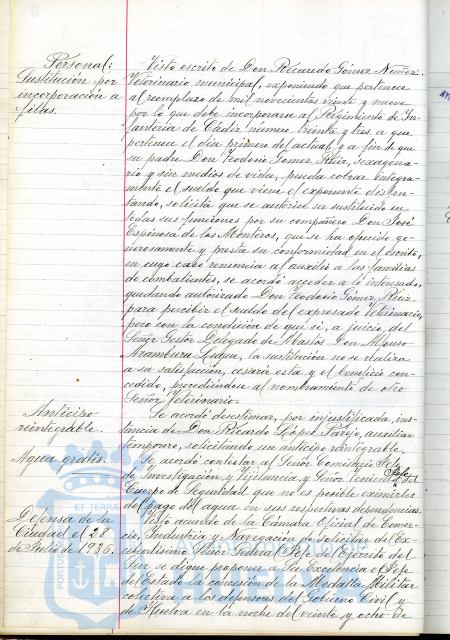 Personal:
Sustitución por
incorporación a
filas.
Visto escrito de Don Recaredo Gómez Nuñez
Veterinario municipal, exponiendo que pertenece
al reemplazo de mil novecientos veinte y nueve
por lo que debe incorporarse al Regimiento de In-
fantería de Cádiz número treinta y tres a que
pertenece el día primero del actual y a fin de que
su padre Don Teodosio Gómez Ruiz, sexagena-
rio y sin medios de vida, pueda cobrar íntegra-
mente el sueldo que viene el exponente disfru-
tando, solicita que se autorice ser sustituido en
todas sus funciones por su compañero Don José
Espinosa de los Monteros, que se ha ofrecido ge-
nerosamente y presta su conformidad en el escrito,
en cuyo caso renuncia al auxilio a las familias
de combatientes, se acordó acceder a lo interesado,
quedando autorizado Don Teodosio Gómez Ruiz
para percibir el sueldo del expresado Veterinario,
pero con la condición de que si, a juicio, del
Señor Gestor Delegado de Abastos Don Alfonso
Aramburu Luque, la sustitución no se realiza
a su satisfacción, cesaría esta y el beneficio con-
cedido, procediéndose al nombramiento de otro
Señor Veterinario.
Anticipo
reintegrable.
Se acordó desestimar, por injustificada, ins-
tancia de Don Ricardo López Parejo, auxiliar
temporero, solicitando un anticipo reintegrable.
Agua gratis.
Se acordó contestar al Señor Comisario Jefe
de Investigación y Vigilancia, y Señor Teniente Jefe del
Cuerpo de Seguridad que no es posible eximirles
del pago del agua en sus respectivas dependencias.
Defensa de la
Ciudad el 28
de Julio de 1936.
Visto acuerdo de la Cámara Oficial de Comer-
cio, Industria y Navegación de solicitar del Ex-
celentísimo Señor General Jefe del Ejército del
Sur se digne proponer a Su Excelencia el Jefe
del Estado la concesión de la Medalla Militar
colectiva a los defensores del Gobierno Civil y
de Huelva en la noche del veinte y ocho de
ET TERRA